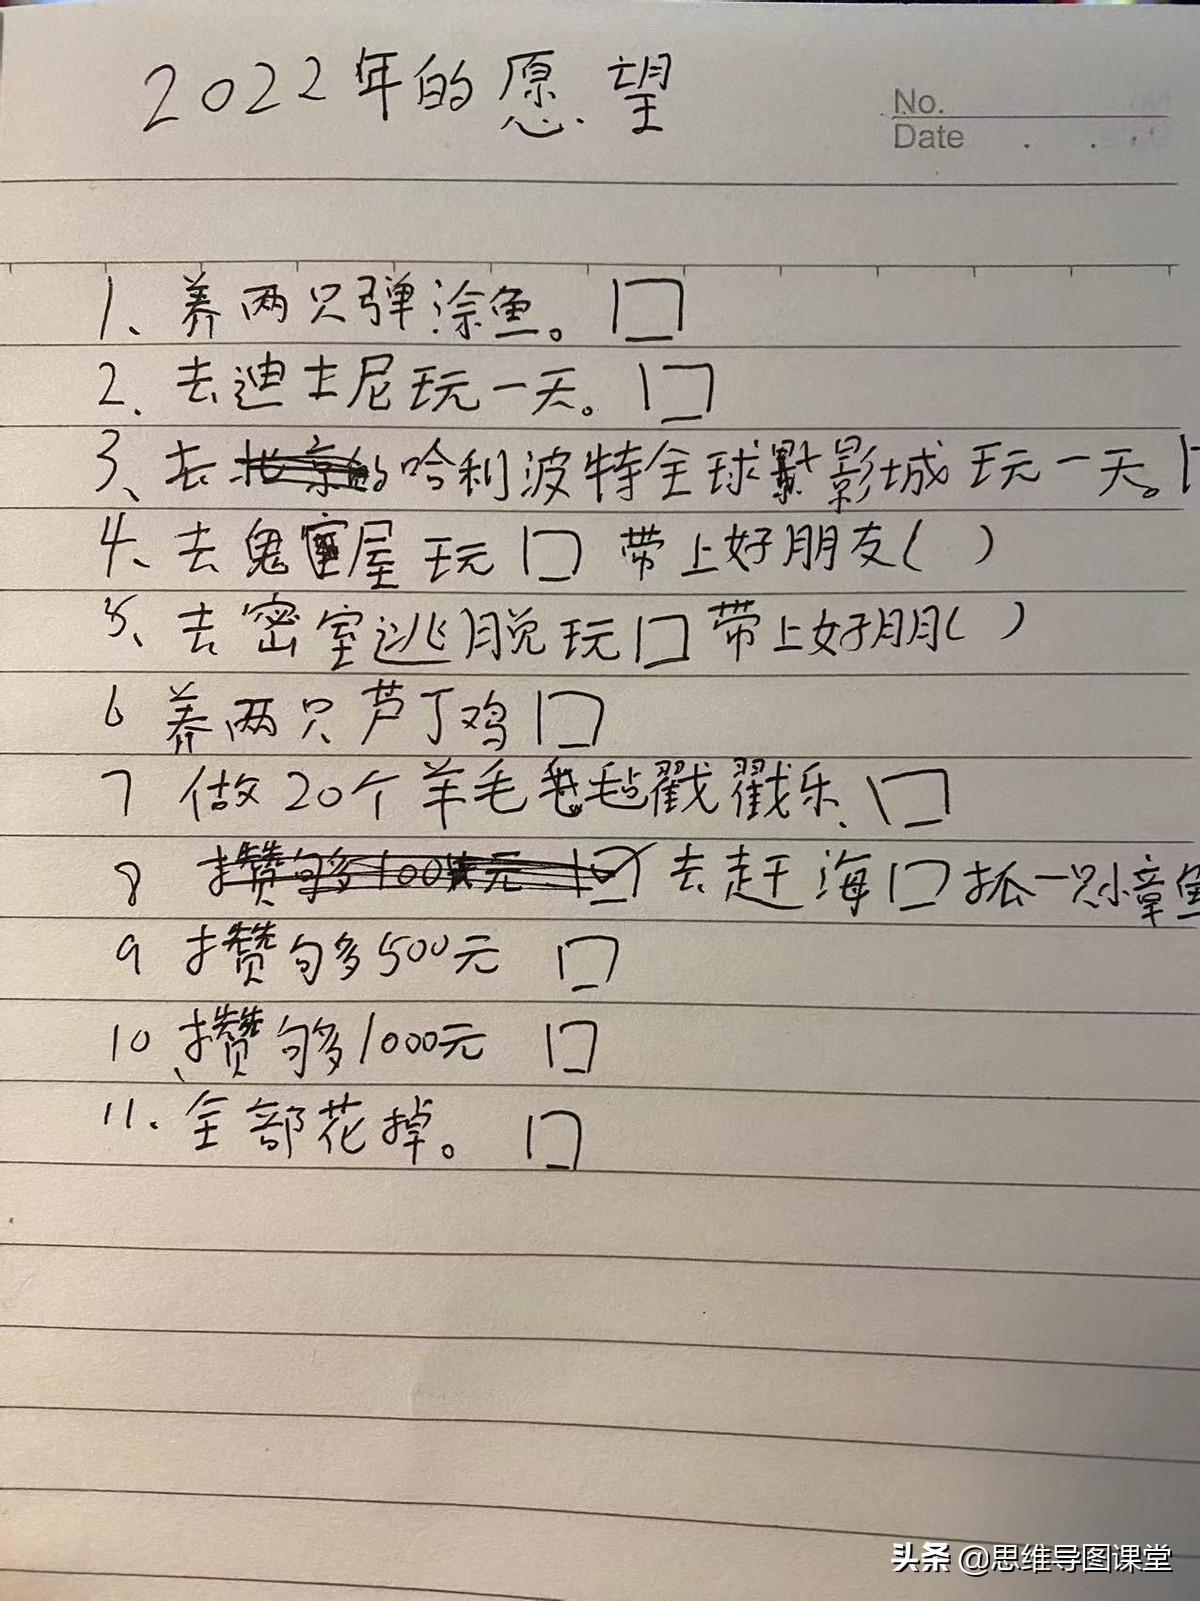 2022年的愿望
No.
Date
1、养两只弹涂鱼。口
2、去迪士尼玩一天。口
3、去北京的哈利波特全球影城玩一天。
4、去鬼屋玩口 带上好朋友( )
5、去密室逃脱玩口带上好朋( )
6 养两只芦丁鸡口
7 做20个羊毛毡戳戳乐、口
8 攒够多100元 去赶海口抓一只小章鱼
9 攒句多500元 口
10、攒句多1000元 口
11.全部花掉。口
头条 @思维导图课堂